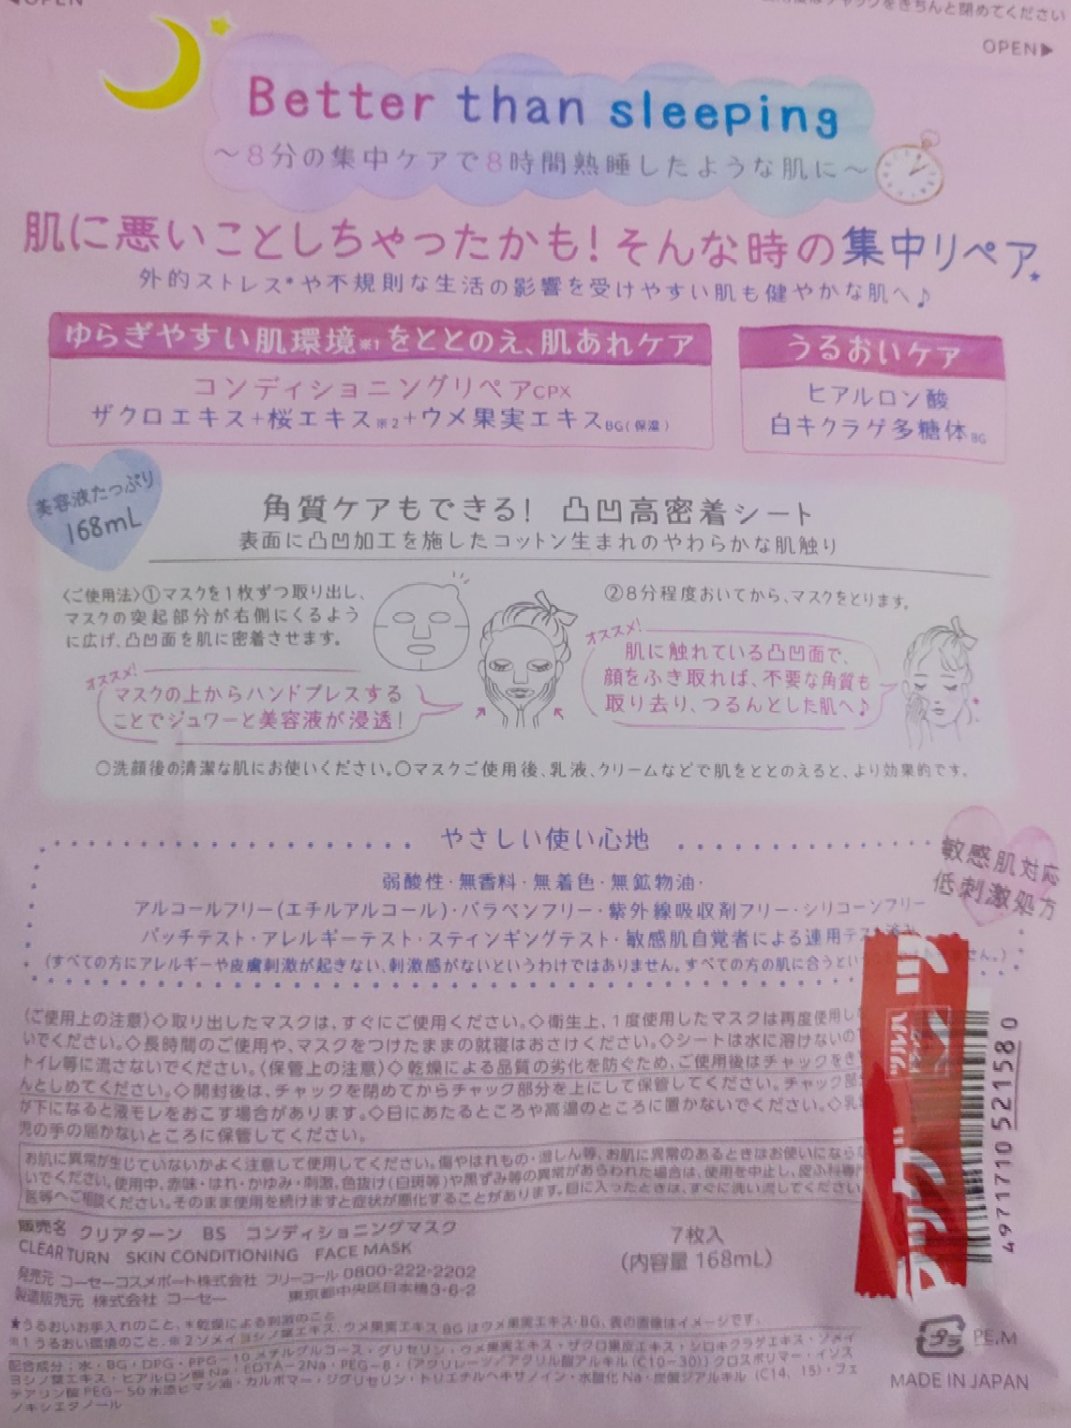 OPEN
チャックをきちんと閉めてください
OPEN▶
Better than sleeping
～8分の集中ケアで8時間熟睡したような肌に～
肌に悪いことしちゃったかも！そんな時の集中リペア★
外的ストレス*や不規則な生活の影響を受けやすい肌も健やかな肌へ♪
ゆらぎやすい肌環境※1をととのえ、肌あれケア
コンディショニングリペアCPX
ザクロエキス+桜エキス※2+ウメ果実エキスBG(保湿)
うるおいケア
ヒアルロン酸
白キクラゲ多糖体BG
美容液たっぷり
168mL
角質ケアもできる！ 凸凹高密着シート
表面に凸凹加工を施したコットン生まれのやわらかな肌触り
〈ご使用法〉①マスクを1枚ずつ取り出し、
マスクの突起部分が右側にくるよう
に広げ、凸凹面を肌に密着させます。
オススメ!
マスクの上からハンドプレスする
ことでジュワーと美容液が浸透！
②8分程度おいてから、マスクをとります。
オススメ!
肌に触れている凸凹面で、
顔をふき取れば、不要な角質も
取り去り、つるんとした肌へ♪
○洗顔後の清潔な肌にお使いください。○マスクご使用後、乳液、クリームなどで肌をととのえると、より効果的です。
やさしい使い心地
敏感肌対応
低刺激処方
弱酸性・無香料・無着色・無鉱物油・
アルコールフリー(エチルアルコール)・パラベンフリー・紫外線吸収剤フリー・シリコーンフリー
パッチテスト・アレルギーテスト・スティンギングテスト・敏感肌自覚者による連用テスト済み
(すべての方にアレルギーや皮膚刺激が起きない、刺激感がないというわけではありません。すべての方の肌に合うとい
〈ご使用上の注意〉◇取り出したマスクは、すぐにご使用ください。◇衛生上、1度使用したマスクは再度使用し
いでください。◇長時間のご使用や、マスクをつけたままの就寝はおさけください。◇シートは水に溶けないの
トイレ等に流さないでください。〈保管上の注意〉◇乾燥による品質の劣化を防ぐため、ご使用後はチャックをき
んとしめてください。◇開封後は、チャックを閉めてからチャック部分を上にして保管してください。チャック部
が下になると液モレをおこす場合があります。◇日にあたるところや高温のところに置かないでください。◇乳
児の手の届かないところに保管してください。
お肌に異常が生じていないかよく注意して使用してください。傷やはれもの・湿しん等、お肌に異常のあるときはお使いにならな
いでください。使用中、赤味・はれ・かゆみ・刺激、色抜け(白斑等)や黒ずみ等の異常があらわれた場合は、使用を中止し、皮ふ科専門
医等へご相談ください。そのまま使用を続けますと症状が悪化することがあります。目に入ったときは、すぐに洗い流してください
ツルハ
4971710521580
販売名 クリアターン BS コンディショニングマスク
CLEAR TURN SKIN CONDITIONING FACE MASK
7枚入
(内容量 168mL)
発売元 コーセーコスメポート株式会社 フリーコール 0800-222-2202
製造販売元 株式会社 コーセー 東京都中央区日本橋3-6-2
★うるおいお手入れのこと、*乾燥による刺激のこと
※1うるおい環境のこと、※2ソメイヨシノ葉エキス、ウメ果実エキスBGはウメ果実エキス・BG、表の画像はイメージです。
配合成分：水・BG・DPG・PPG-10メチルグルコース・グリセリン・ウメ果実エキス・ザクロ果皮エキス・シロキクラゲエキス・ソメイ
ヨシノ葉エキス・ヒアルロン酸Na・EDTA-2Na・PEG-8・(アクリレーツ/アクリル酸アルキル(C10-30))クロスポリマー・イソス
テアリン酸PEG-50水添ヒマシ油・カルボマー・ジグリセリン・トリエチルヘキサノイン・水酸化Na・炭酸ジアルキル(C14、15)・フェ
ノキシエタノール
プラ PE,M
MADE IN JAPAN